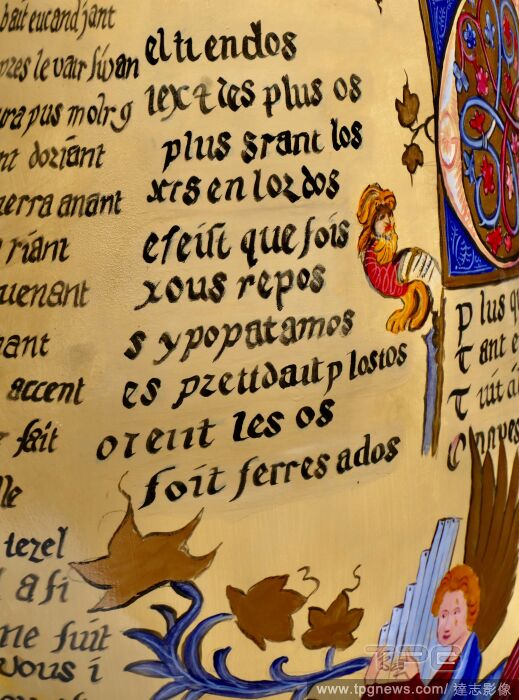 bait eucandjant
le vair suyan
ura pus molrg
nt doriant
erra anant
riant
uenant
ant
accent
fait
lle
tezel
l a fi
ne fuit
vous i
el ti endos
les plus os
plus srant los
en lordos
que fois
xous repos
s ypopatamos
es prettdait plostos
orent les os
foit ferres ados
Plus q
Tant e
Tuit a
TPG
www.tpgnews.com/達志影像